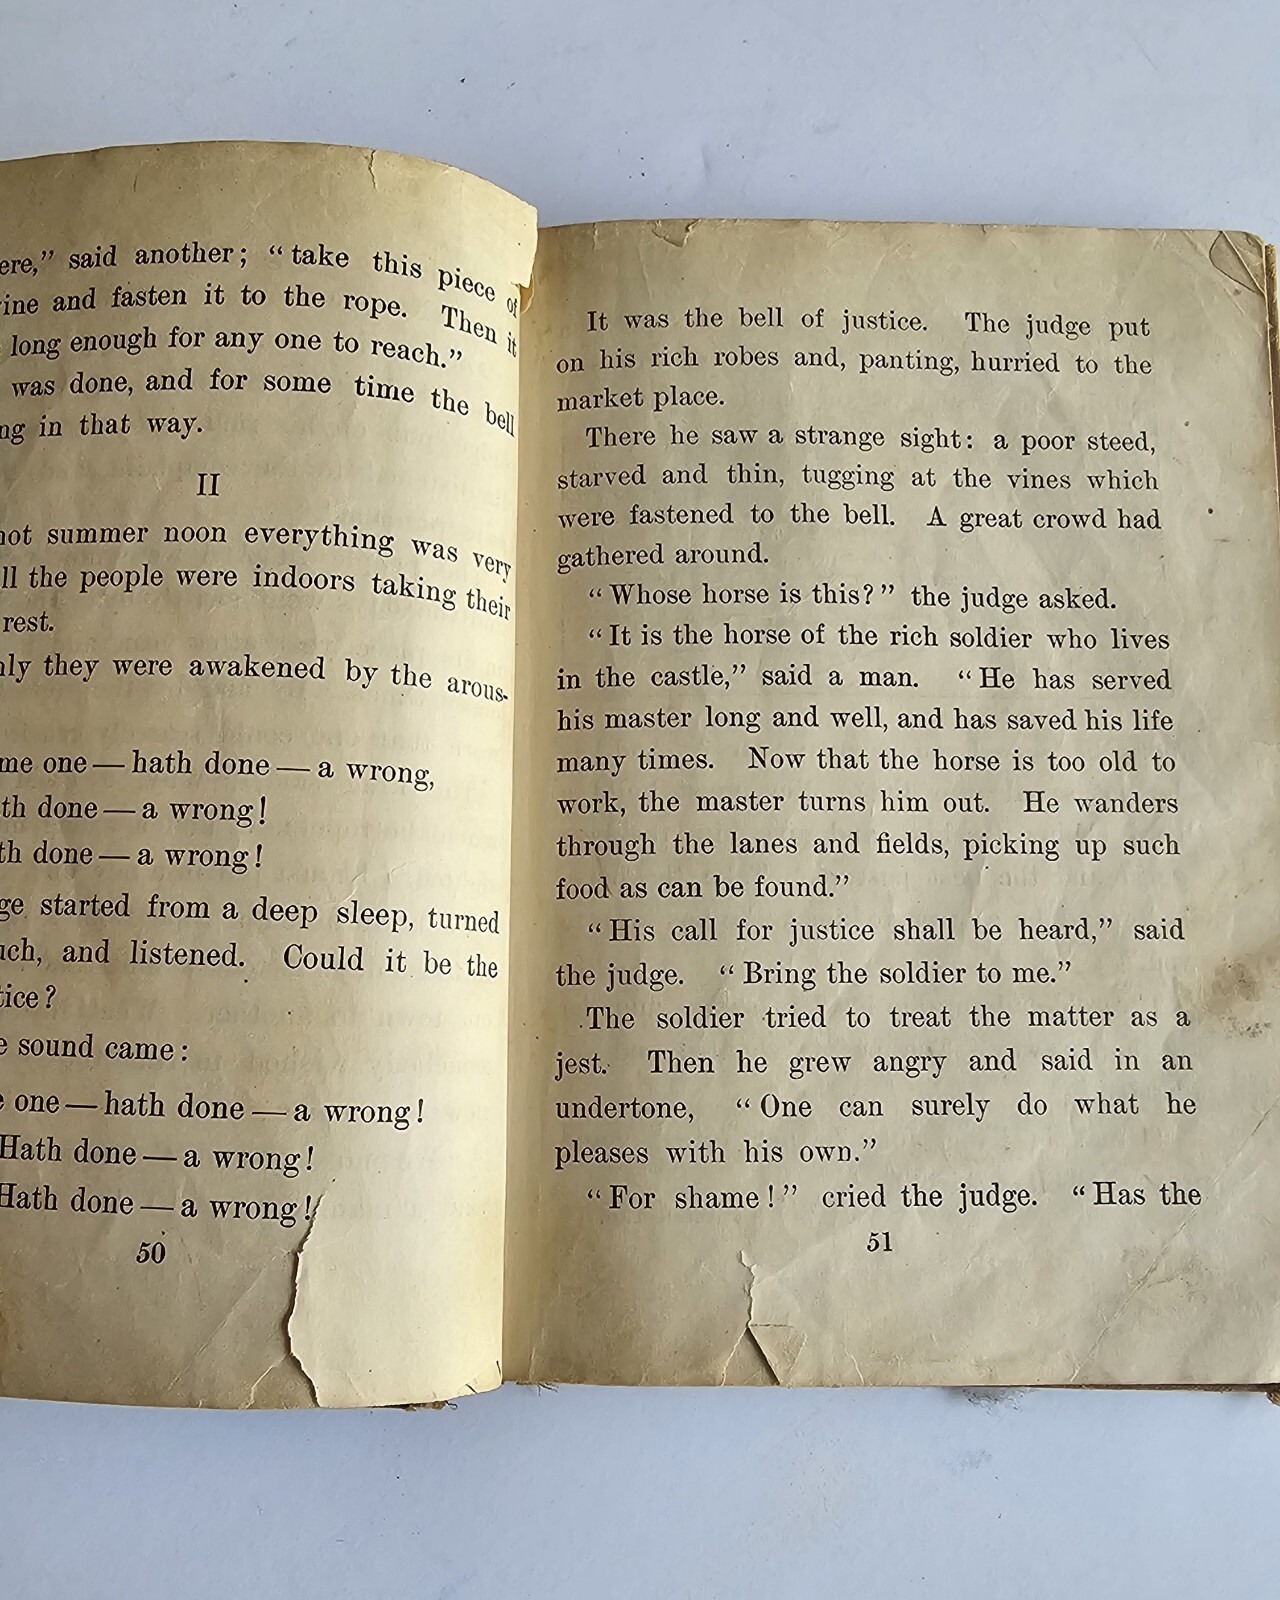 said another; “take this piece of
and fasten it to the rope. Then it
long enough for any one to reach.”
was done, and for some time the bell
in that way.
II
summer noon everything was very
the people were indoors taking their
rest.
they were awakened by the arous-
one — hath done — a wrong,
done — a wrong!
done — a wrong!
started from a deep sleep, turned
and listened. Could it be the
sound came:
one — hath done — a wrong!
Hath done — a wrong!
Hath done — a wrong!
50
It was the bell of justice. The judge put
on his rich robes and, panting, hurried to the
market place.
There he saw a strange sight: a poor steed,
starved and thin, tugging at the vines which
were fastened to the bell. A great crowd had
gathered around.
“Whose horse is this?” the judge asked.
“It is the horse of the rich soldier who lives
in the castle,” said a man. “He has served
his master long and well, and has saved his life
many times. Now that the horse is too old to
work, the master turns him out. He wanders
through the lanes and fields, picking up such
food as can be found.”
“His call for justice shall be heard,” said
the judge. “Bring the soldier to me.”
The soldier tried to treat the matter as a
jest. Then he grew angry and said in an
undertone, “One can surely do what he
pleases with his own.”
“For shame!” cried the judge. “Has the
51